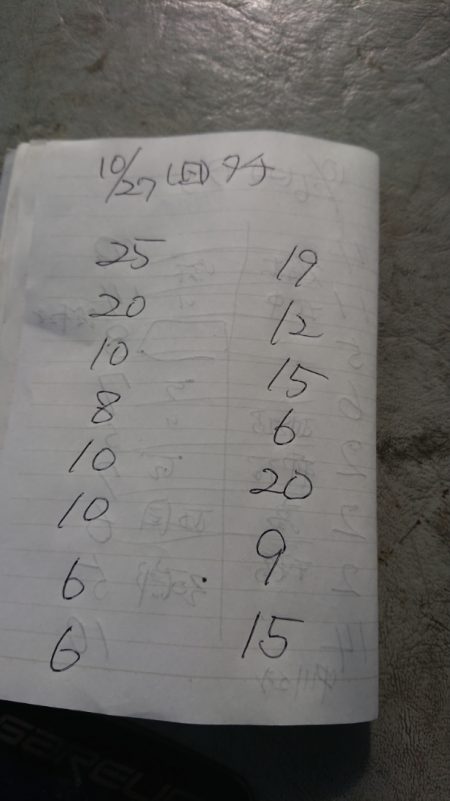 10/27 (日)
25
20
10
8
10
10
6
6
19
12
15
6
20
9
15